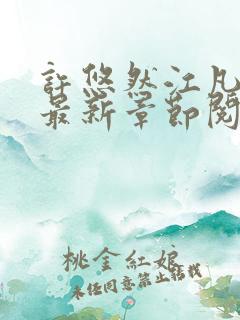 許悠然江凡
最新章節閱
桃金紅娘
未经同意禁止转载